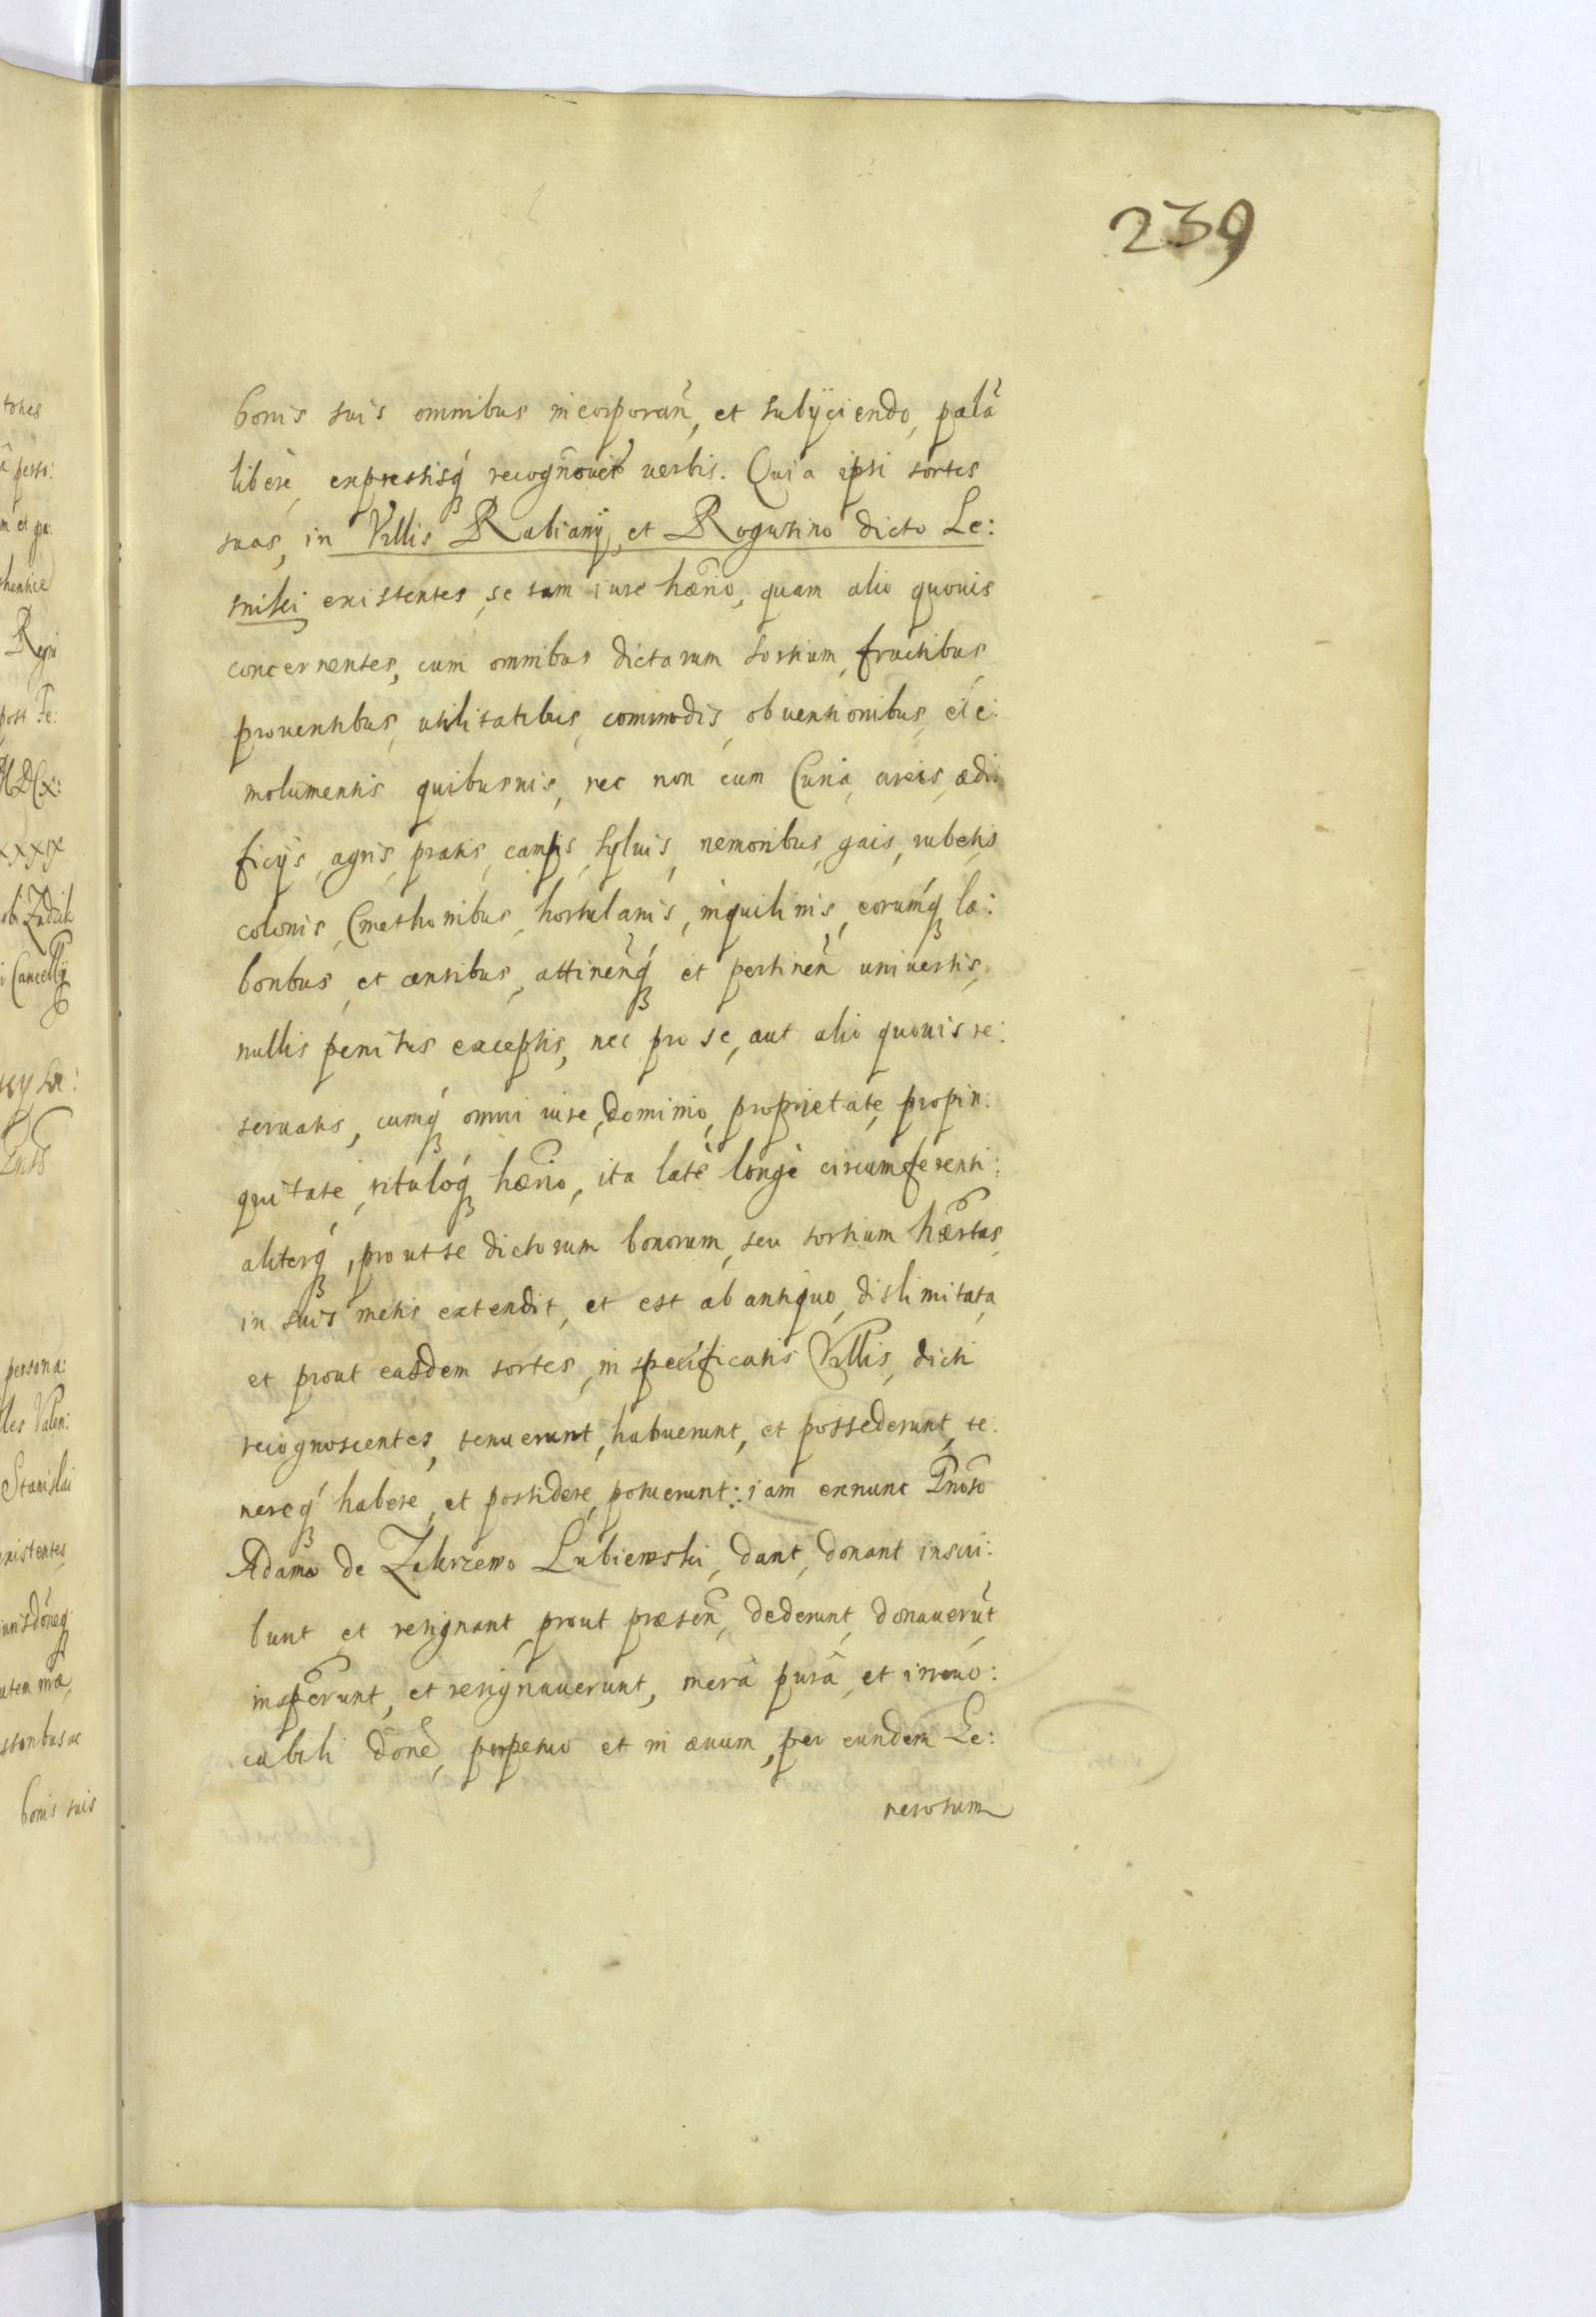 239
bonis suis omnibus incorporañ, et subÿciendo, palã
liberè, expressisq́ʒ recognouer̃t verbis. Quia ipsi sortes
suas, in Villis Rabiany, et Rogusino dicto Le:
sniski existentes, se tam iure hærio, quam alio quouis
concernentes, cum omnibus dictarum sortium, fructibus,
prouentibus, utilitatibus, commodis, obuentionibus, et e:
molumentis quibusuis, nec non cum Curia, areis, ædi:
ficÿs, agris, pratis, campis, syluis, nemoribus, gais, rubetis
colonis, Cmethonibus, hortulanis, inquilinis, eorumq́ʒ la:
boribus, et censibus, attineñq́ʒ et pertineñ uniuersis,
nullis penitus exceptis, nec pro se, aut alio quouis re:
seruatis, cumq́ʒ omni iure, dominio, proprietate, propin:
quitate, tituloq́ʒ hærio, ita latè longè circumferenti:
aliterq́ʒ, prout se dictorum bonorum, seu sortium hærtas,
in suis metis extendit, et est ab antiquo, dislimitata,
et prout easdem sortes, in specificatis Villis, dicti
recognoscentes, tenuerunt, habuerunt, et possederunt, te:
nereq́ʒ habere, et possidere, potuerunt: iam exnunc Gnoso
Adamo de Zakrzewo Lubiewski, dant, donant inscri:
bunt et resignant, prout præseñ, dederunt, donauerũt
inscperunt, et resignauerunt, merâ purâ, et irreuo:
cabili done, perpetuo et in æuum, per eundem Ge:
nerosum
bonis suis